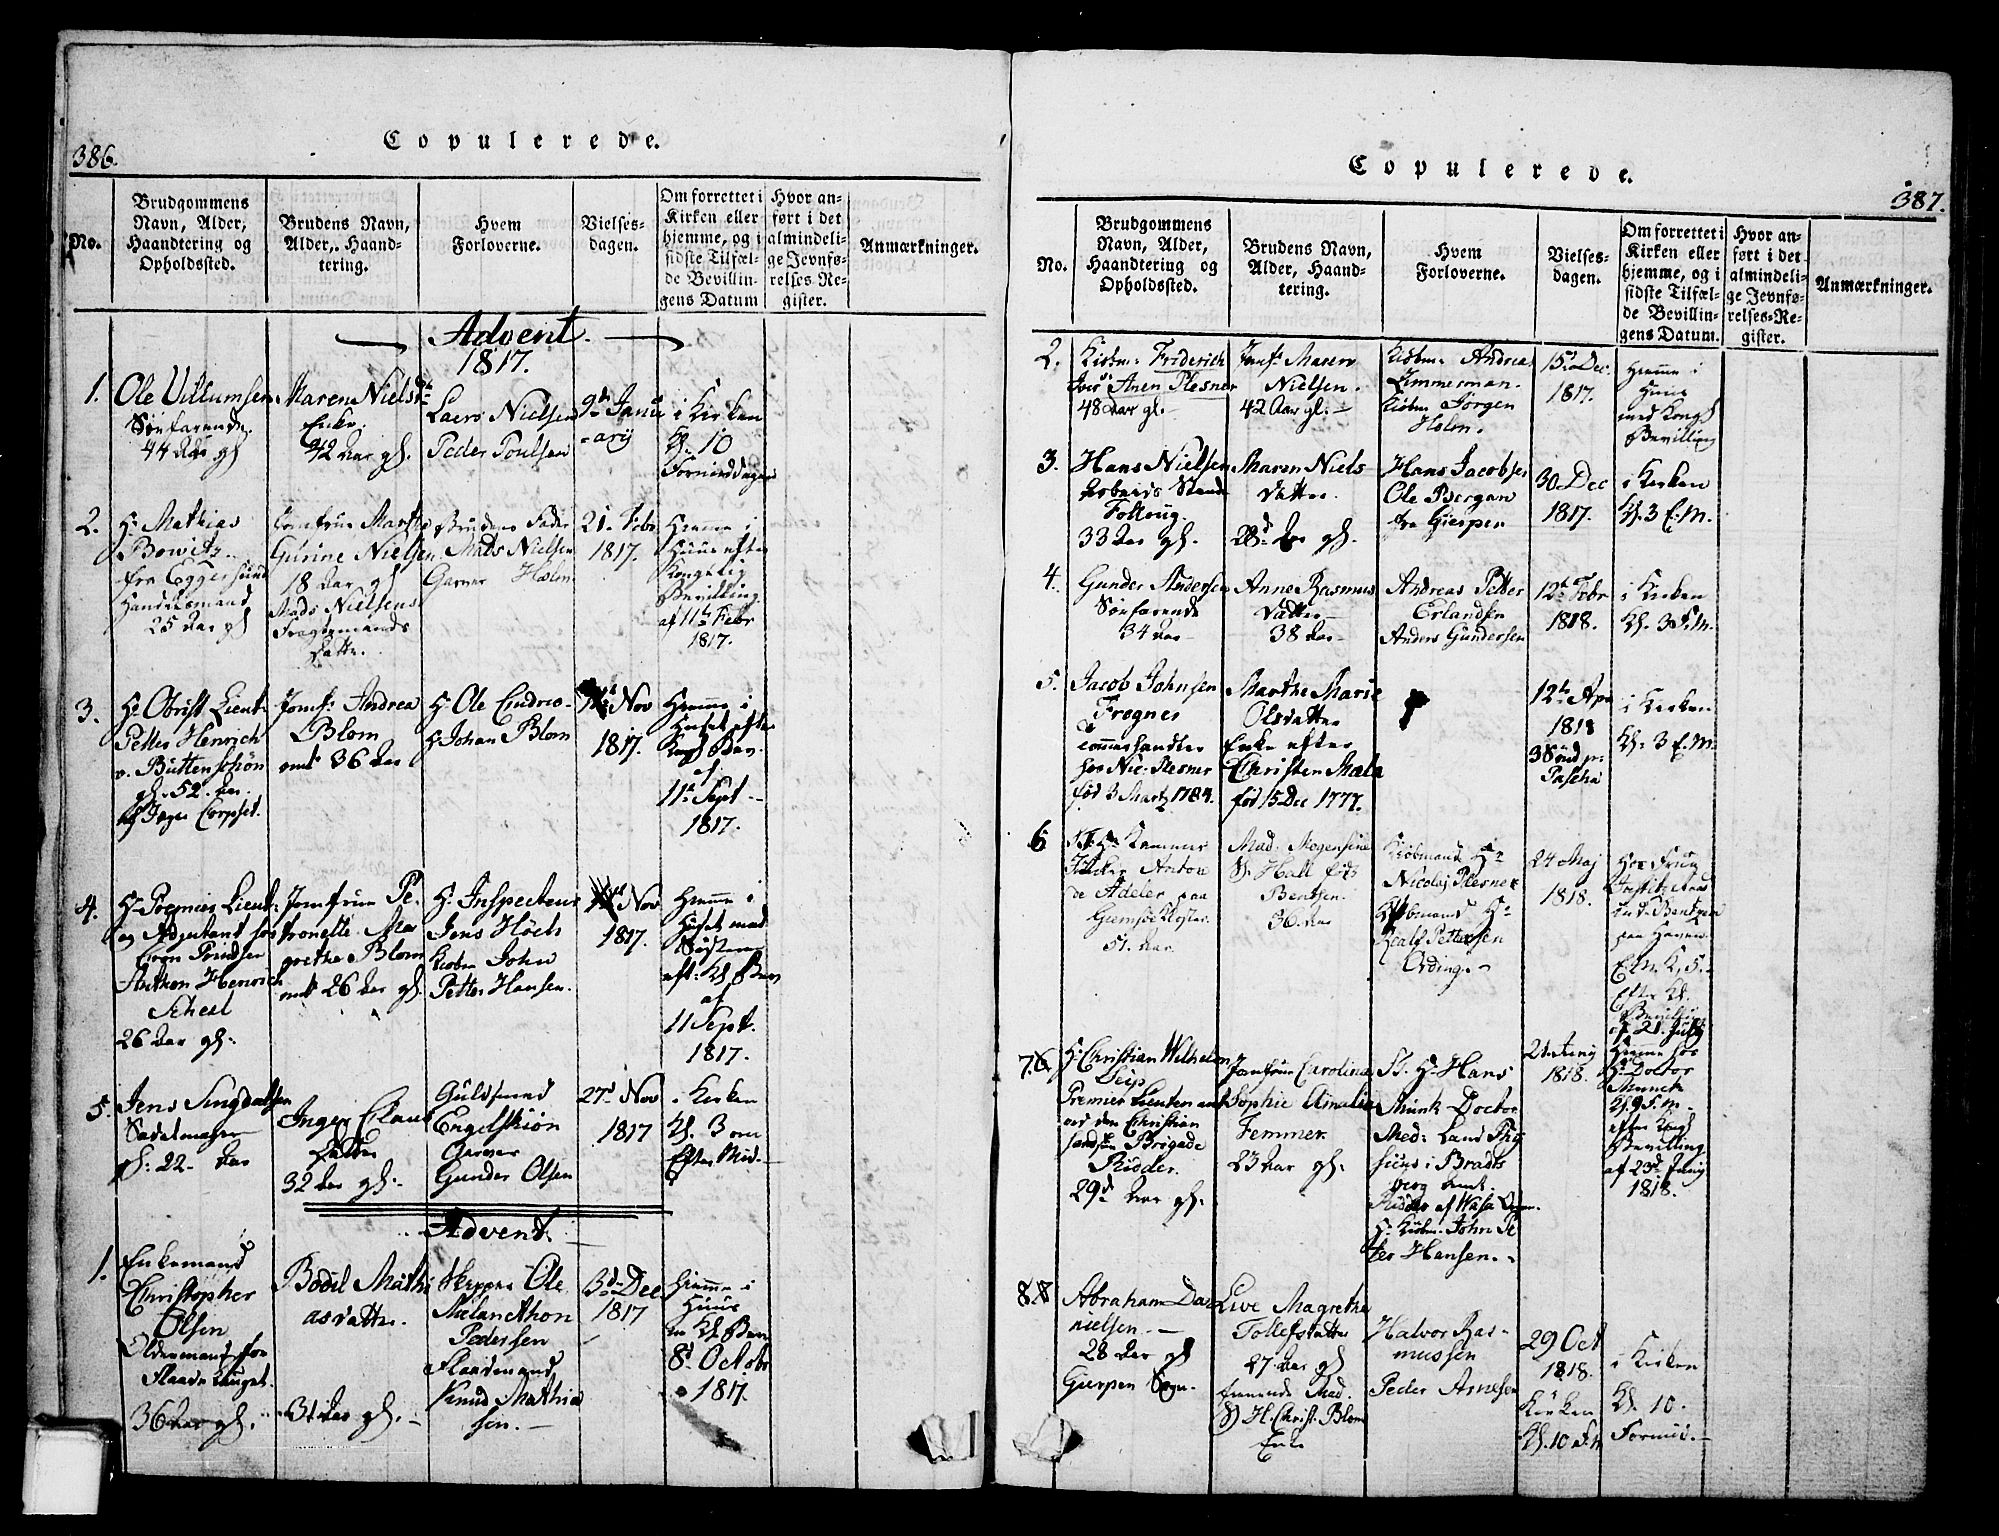 386.
Copulerede.
No.
Brudgommens
Navn, Alder,
Haandtering og
Opholdssted.
Brudens Navn,
Alder, Haand-
tering.
Hvem
Forloverne.
Vielses-
dagen.
Om forrettet i
Kirken eller
hjemme, og i
sidste Tilfæl-
de Bevillin-
gens Datum
Hvor an-
ført i det
almindeli-
ge Jevnfø-
relses-Re-
gister.
Anmærkninger.
Advent
1817.
1.
Ole Willumsen
Søefarende
44 Aar gl
Maren Niels
Enke.
42 Aar gl.
Laers Nielsen
Peder Poulsen
9de Janu
ary
i Kirken
Kl. 10
Formiddagen
2.
Hr Mathias
Bowitz
fra Eggersund
Handelsmand
25 Aar gl
Jomfrue Marthe
Gurine Nielsen
18 Aar gl
Mads Nielsens
datter.
Brudens Fader
Mads Nielsen
Garver Holm
21. Febr
1817.
Hiemme i
Huus efter
Kongelig
Bevilling
af 11te Febr
1817.
3.
Hr Obrist Lieut
Petter Henrich
v. Büttenschøn
gl. 52. Aar
Jæger Corpset.
Jomfr. Andrea
Blom
omt 36 Aar
Hr Ole Endres
Hr Johan Blom
Nov
1817.
Hiemme i
Huset efter
Kongl Bev.
af
11te Sept
1817.
4.
Hr Premier Lieut:
og Adjutant hos
Anthon Henrich
Scheel
26 Aar gl:
Jomfrue Pe-
tronelle Ma
grethe Blom
omt 26 Aar gl.
Hr Inspecteur
Jens Höeh
Kiøbm John
Petter Hansen.
Nov
1817.
Hiemme i
Huset med
eft: Kl Bev
af
11 Sept.
1817.
5.
Jens Singdalsen
Sadelmager
gl: 22. Aar
Inger Claus
Datter
32 Aar gl.
Guldsmed
Engelskiön
Garver
Gunder Olsen
27d Nov
1817
i Kirken
Kl. 3 om
Efter Mid.
Advent
1.
Enkemand
Christopher
Olsen
Oldermand for
Flaade Lauget.
36 Aar gl.
Bodil Mathi
asdatter.
31 Aar gl.
Skipper Ole
Melancthon
Pedersen
Flaademand
Knud Mathia
sen.
3d Dec
1817
Hiemme i
Huus
Kl Bev
8d Octobr
1817.
Copulerede.
387.
No.
Brudgommens
Navn, Alder,
Haandtering og
Opholdssted.
Brudens Navn,
Alder, Haand-
tering.
Hvem
Forloverne.
Vielses-
dagen.
Om forrettet i
Kirken eller
hjemme, og i
sidste Tilfæl-
de Bevillin-
gens Datum.
Hvor an-
ført i det
almindeli-
ge Jevnfø-
relses-Re-
gister.
Anmærkninger.
2.
Kiøbm: Friderich
Iver Anen Plesner
48 Aar gl.
Jomfr Maren
Nielsen.
42 Aar gl.
Kiøbm: Andreas
Zimmerman.
Kiøbm Jörgen
Holm.
15d Dec.
1817.
Hiemme i
Huus
med Kongl
Bevilling
3.
Hans Nielsen
Arbeids Mand
33 Aar gl.
Maren Niels
datter
28d Aar gl.
Hans Jacobsen
Ole Bergan
fra Gierpen
30 Dec
1817.
i Kirken
Kl. 3 E.M.
4.
Gunder Andersen
Søefarende
34 Aar
Anne Rasmus
datter
38 Aar
Andreas Petter
Erlandsen
Anders Gundersen
12te Febr
1818.
i Kirken
Kl. 3 E.M.
5.
Jacob Johnsen
Frognes
hos Nic: Plesner
fød 3 Martz 1784.
Marthe Marie
Olsdatter
Enke efter
Christen Mela
fød 15 Dec 1777.
12te Apr
1818
3 Sönd pr
Pascha
i Kirken
Kl. 3 E.M.
6
S.T. Hr Kammer
Junker Anton
de Adeler paa
Giemsøe Kloster.
51. Aar.
Mad. Mogensine
Sl. Hall føds
Bentsen.
36. Aar
Kiøbmand Hr
Nicolaj Plesner
Kiøbmand Hr
Realf Pettersen
Ording.
24 Maj
1818.
Bentzen
paa Haven
E.M. K, 5.
Efter Kl.
Bevilling
af 21. July
7.
Hr Christian Wilhelm
Seip
Premier Lieutenant
ved den Christian
sandske Brigade
Ridder.
29d Aar gl:
Jomfrue Carolina
Sophie Amalia
Femmer.
23 Aar gl:
S.T. Hr Hans
Munk Doctor
Med: Land Phy
sicus i Brads
berg Amt.
Ridder af Wasa Orden.
Hr Kiøbm. John Pe
ter Hansen.
21 Juny
1818.
Hiemme hos
Hr Doctor
Munck
Kl. 9 F.M.
efter Kongl
Bevilling
af 23d Juny
1818.
8.
Abraham Da
nielsen.
28 Aar gl
Gierpen Sogn.
Live Magrethe
Tollefsdatter
27 Aar gl
tienende Mad.
Sl H. Christ. Blom
Enke
Halvor Ras-
mussen
Peder Arnesen
29 Oct
1818.
Kirken
Kl. 10 F.M
i Kirken
Kl. 10.
Formid.